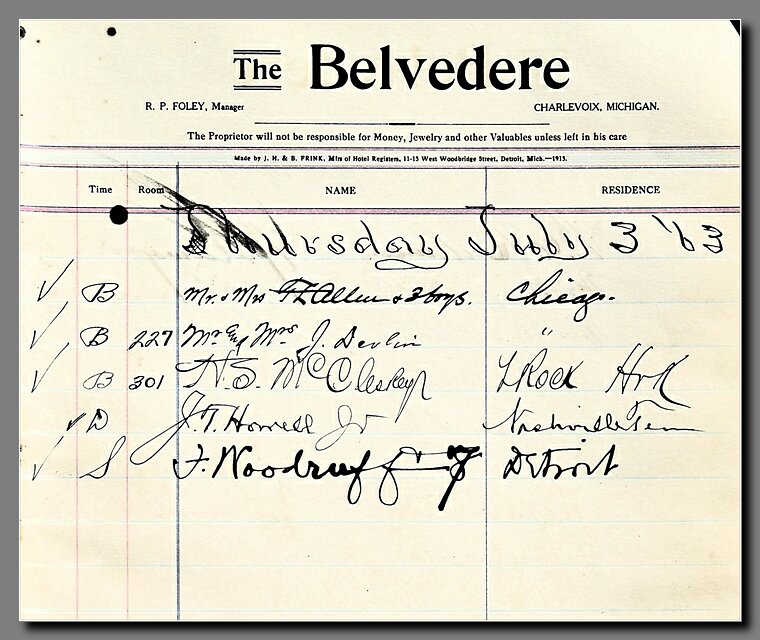 The Belvedere
R. P. FOLEY, Manager CHARLEVOIX, MICHIGAN.
The Proprietor will not be responsible for Money, Jewelry and other Valuables unless left in his care
Made by J. H. & B. FRINK, Mfrs of Hotel Registers, 11-15 West Woodbridge Street, Detroit, Mich.—1913.
Time Room NAME RESIDENCE
Thursday July 3 '13
B Mr. & Mrs Allen & 3 boys. Chicago.
B 227 Mr and Mrs. J. Devlin "
B 301 N. S. McCleskey LRock Ark
D J. T. Howell Jr Nashville Tenn
S F. Woodruff Detroit